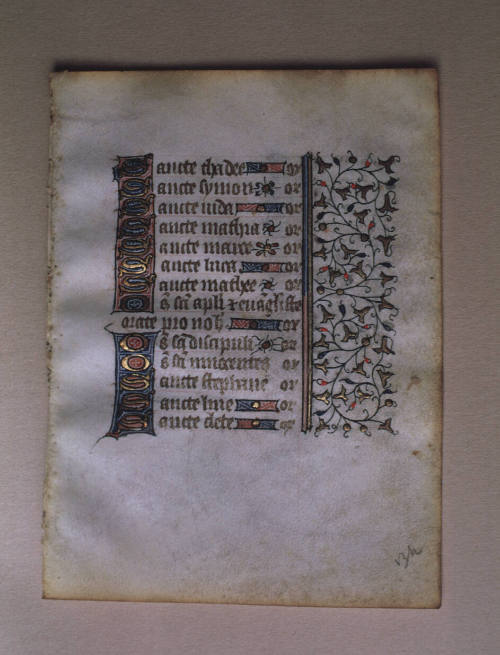 Sancte thadee or
Sancte symon or
Sancte iuda or
Sancte mathia or
Sancte marce or
Sancte luca or
Sancte mathee or
Os̃ sc̃i apl̃i ⁊ euãgliste
orate pro nob̃ or
Os̃ sc̃i discipuli or
Os̃ sc̃i innocentes or
Sancte stephane or
Sancte line or
Sancte clete or